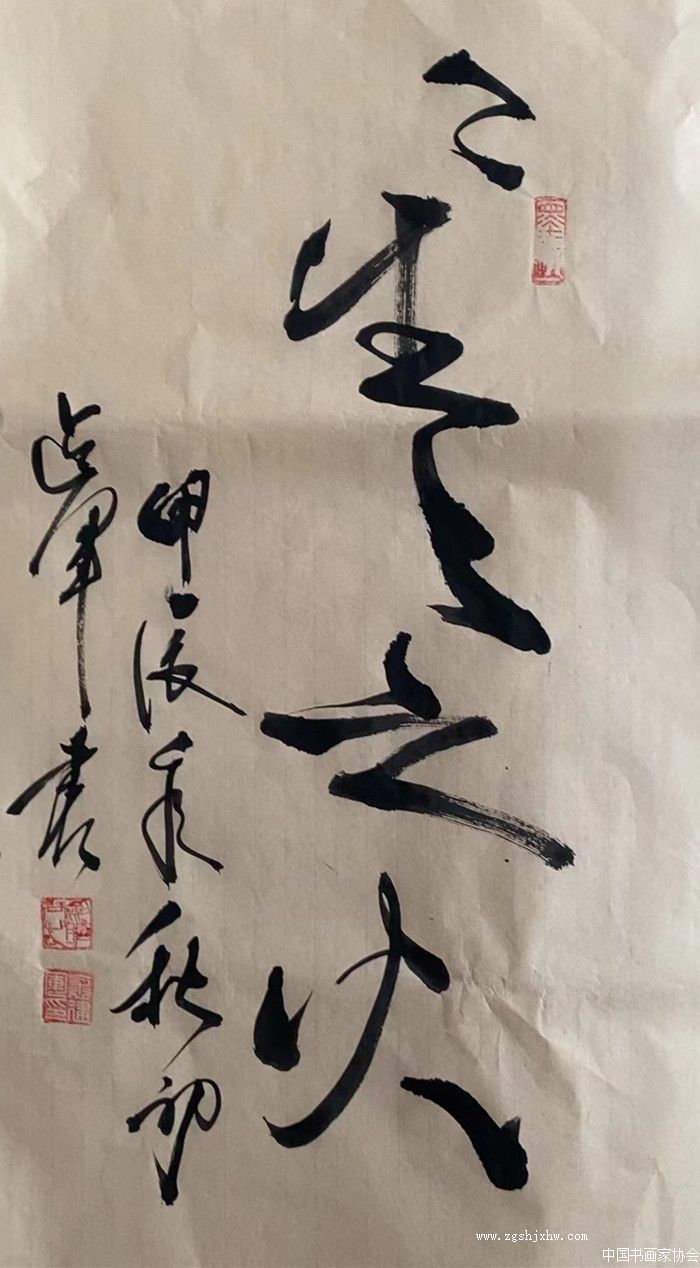 星々之火
甲辰年秋初
建軍書
www.zgshjxhw.com
中国书画家协会